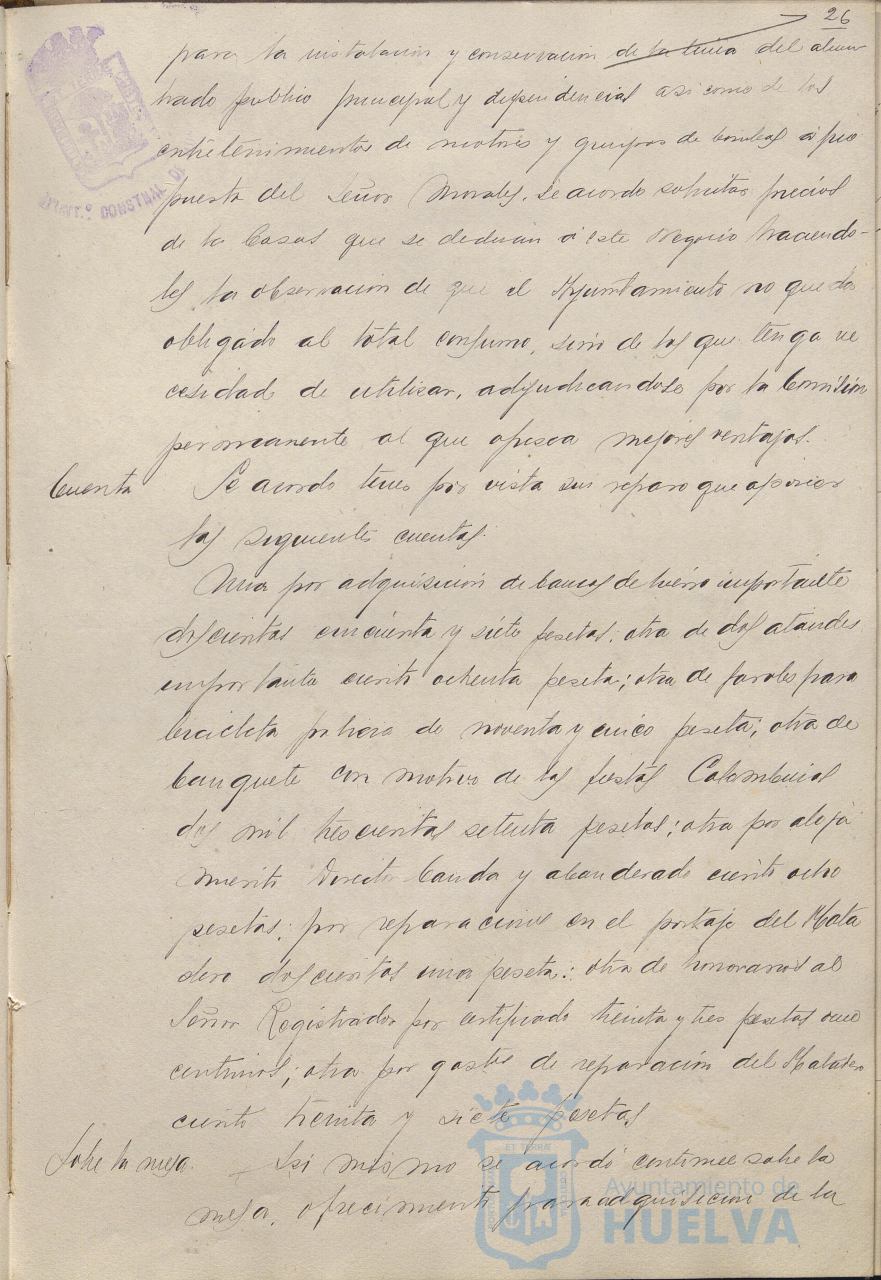 26
para la instalacion y conservacion de la linea del alum-
brado publico principal y dependencias asi como de los
entretenimientos de motores y grupos de bombas a pro
puesta del Señor Morales, se acordo solicitar precios
de la Casas que se dedican a este Negocio haciendo-
les la observacion de que el Ayuntamiento no queda
obligado al total consumo, sino de los que tenga ne
cesidad de utilizar, adjudicandose por la Comisión
permanente al que ofrezca mejores ventajas.
Cuenta Se acordo tener por vista sin reparo que oponer
las siguientes cuentas.
Una por adquisición de bancos de hierro importante
doscientas cincuenta y siete pesetas; otra de dos ataudes
importante ciento ochenta peseta; otra de faroles para
bicicleta de noventa y cinco peseta; otra de
banquete con motivo de las fiestas Colombinas
dos mil trescientas setenta pesetas; otra por aloja
miento Director banda y abanderado ciento ocho
pesetas; por reparaciones en el portaje del Mata
dero doscientas una peseta; otra de honorarios al
Señor Registrador por certificado treinta y tres pesetas once
centimos; otra por gastos de reparación del Matadero
ciento treinta y siete pesetas
Sobre la mesa. Asi mismo se acordó continue sobre la
mesa, ofrecimiento para adquisicion de la
AYUNT.º CONSTNAL D
ET TERRAE
Ayuntamiento de
HUELVA